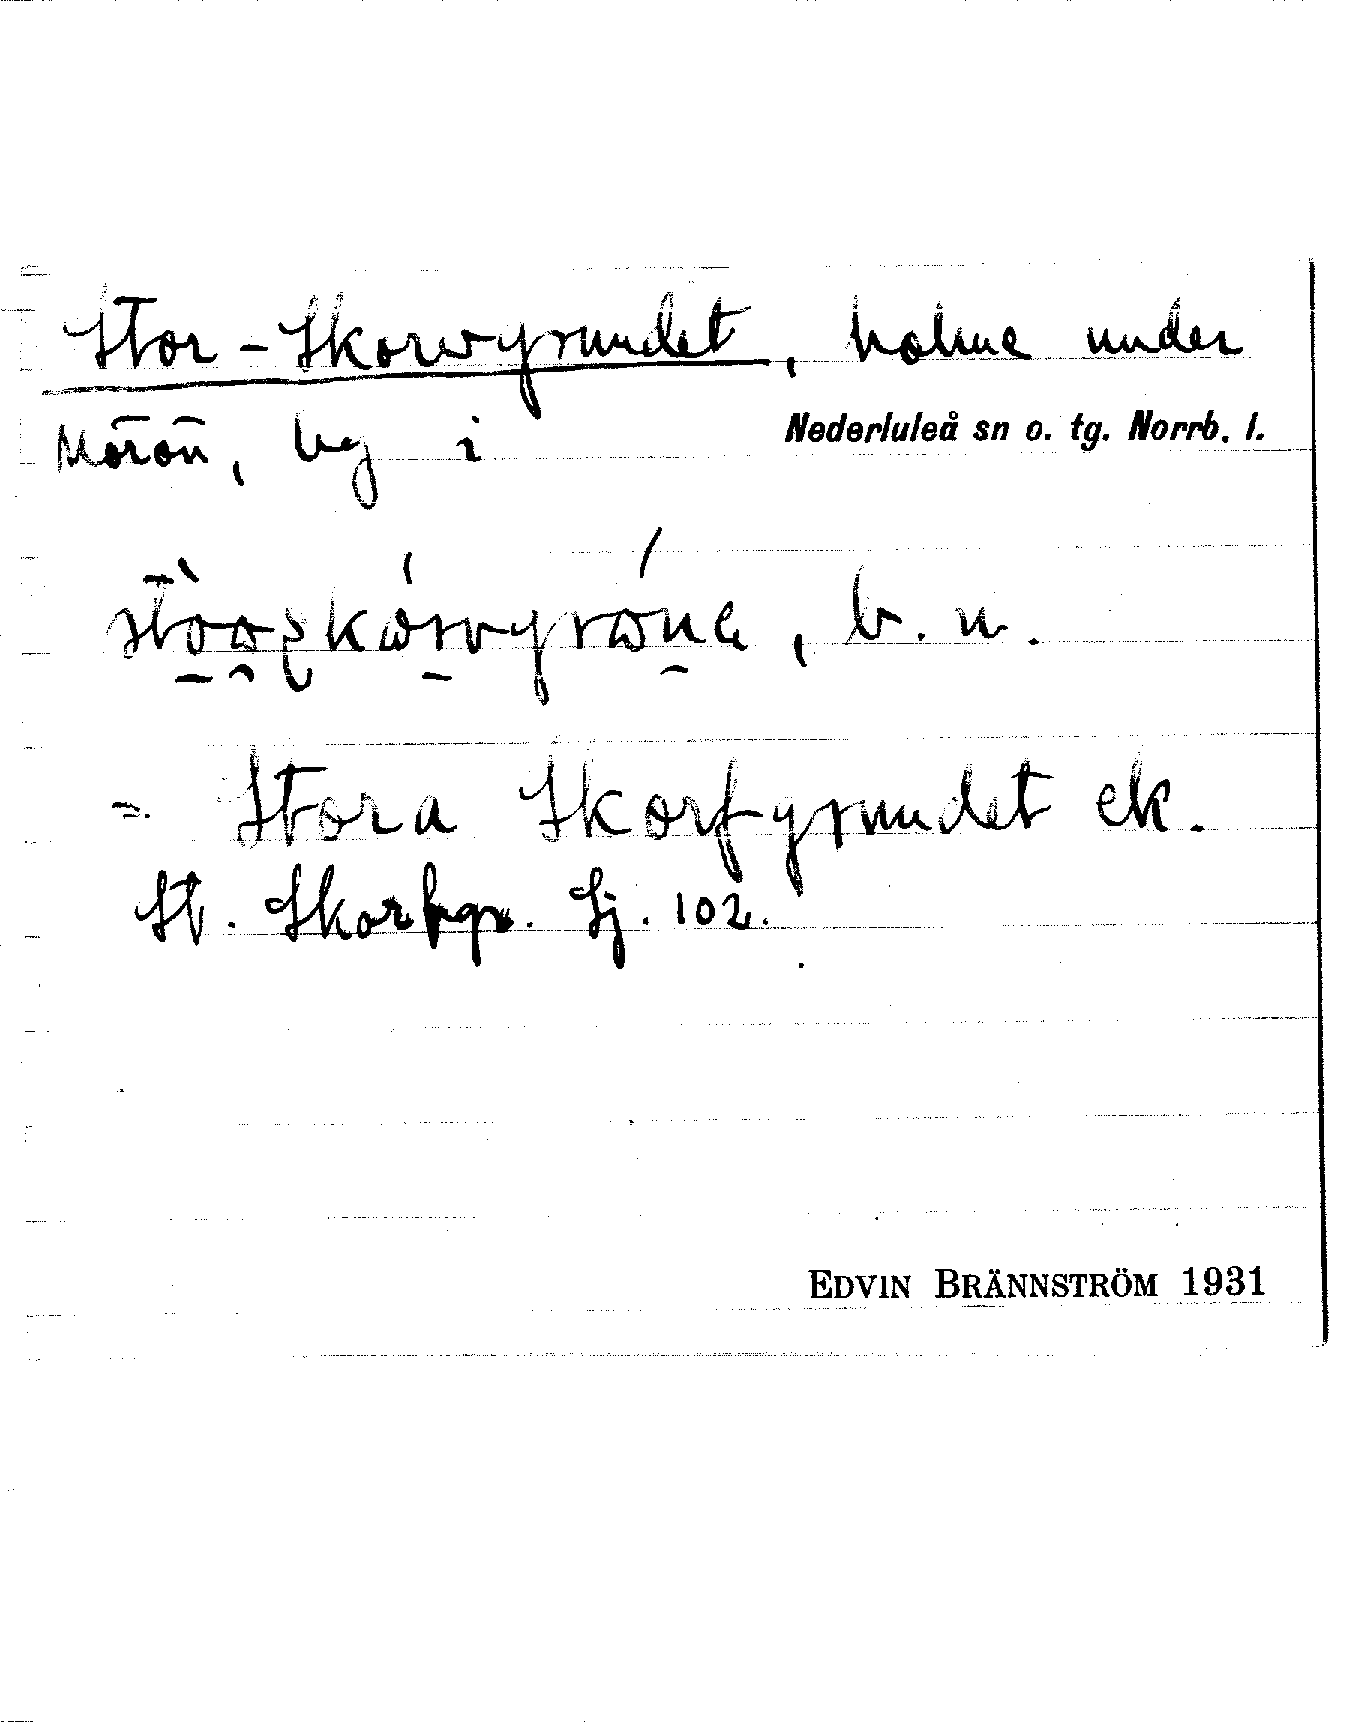 Stor-Skorvgrundet, holme under
Mörön, by i Nederluleå sn o. tg. Norrb. l.
, b. n.
= Stora Skorfgrundet ek.
St. Skorfgr. Sj. 102.
EDVIN BRÄNNSTRÖM 1931